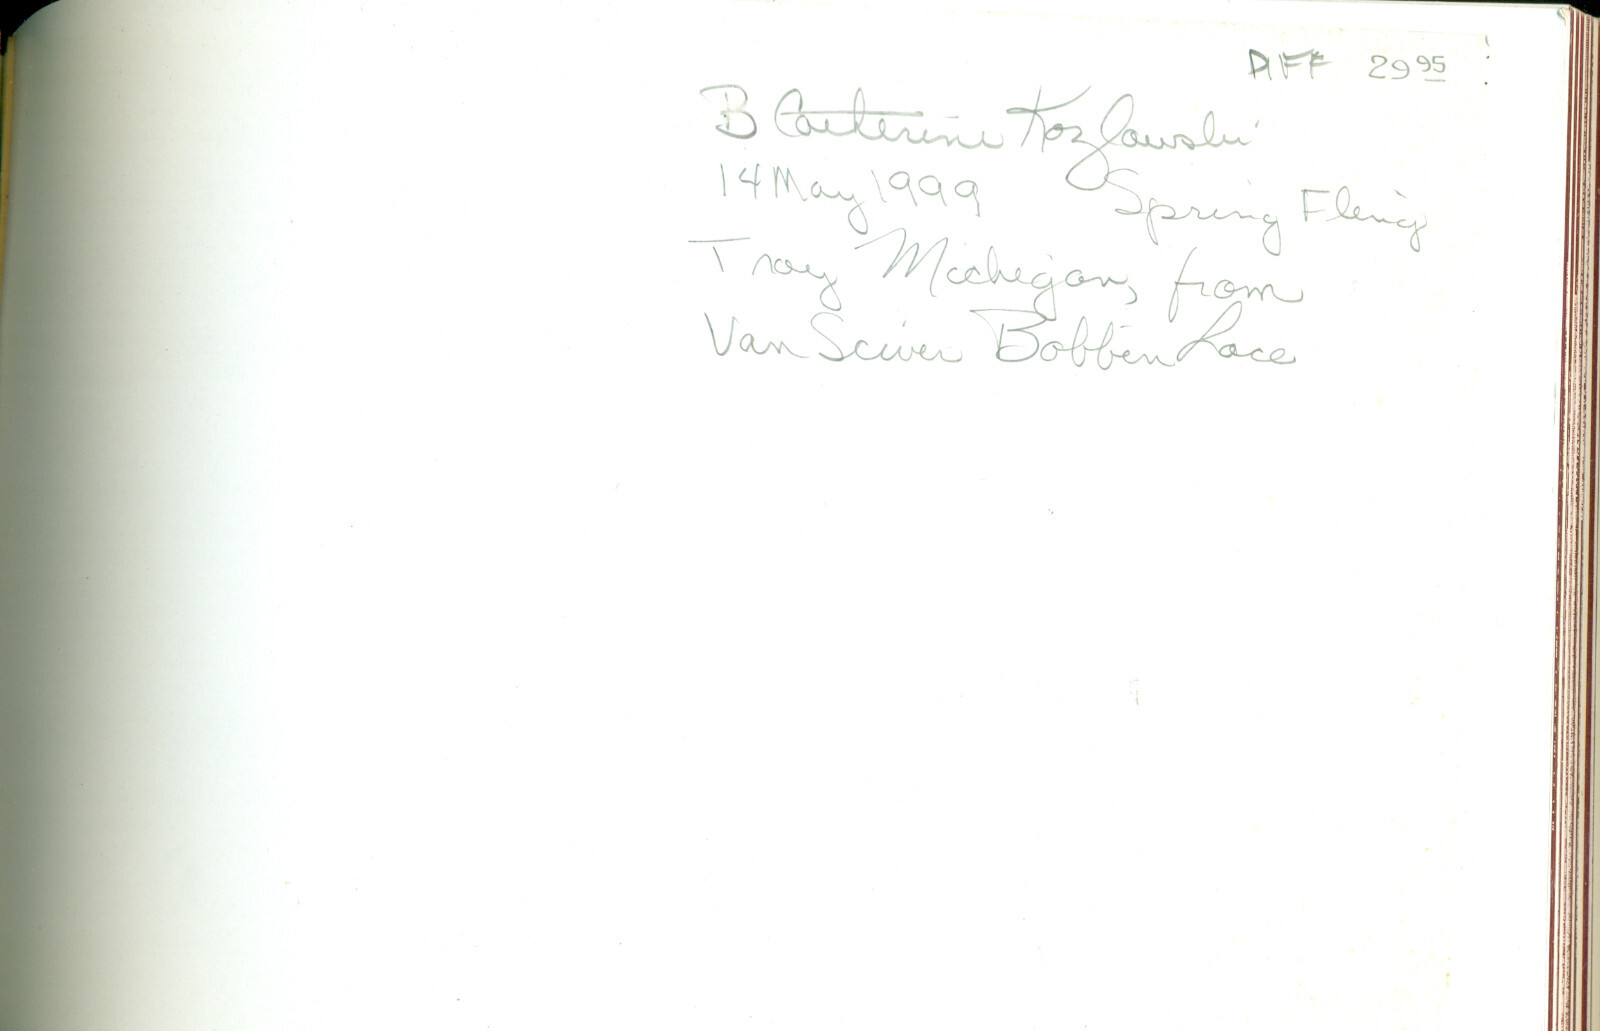 DIFF 29 95
B Caeterine Kozlowski
14 May 1999 Spring Fling
Troy Michigan, from
Van Sciver Bobbin Lace